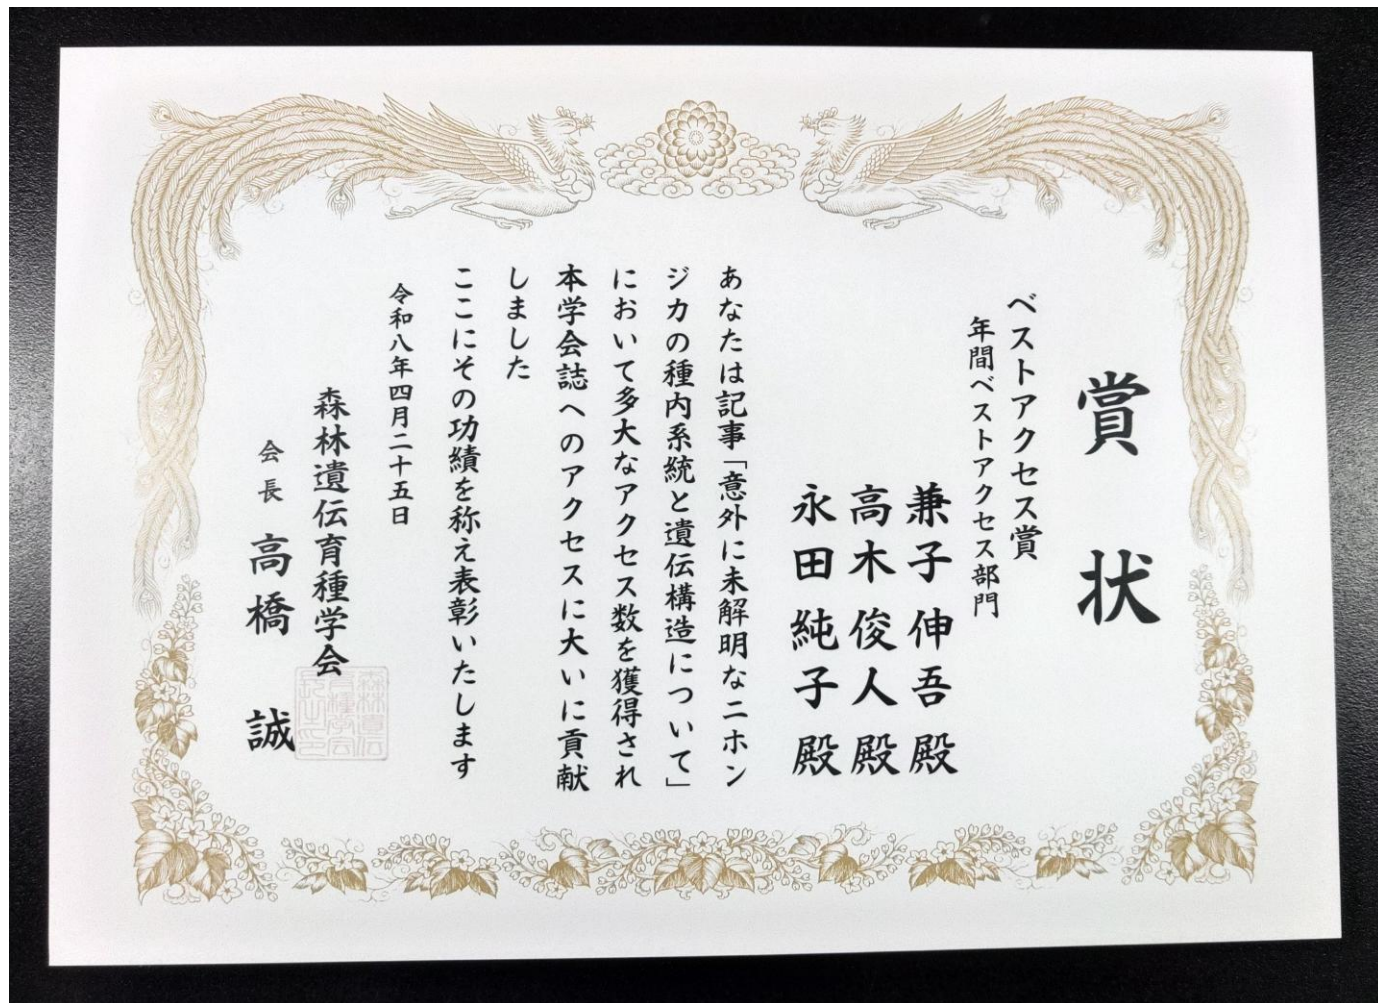 賞状
ベストアクセス賞
年間ベストアクセス部門
兼子伸吾殿
高木俊人殿
永田純子殿
あなたは記事「意外に未解明なニホン
ジカの種内系統と遺伝構造について」
において多大なアクセス数を獲得され
本学会誌へのアクセスに大いに貢献
しました
ここにその功績を称え表彰いたします
令和八年四月二十五日
森林遺伝育種学会
会長 高橋 誠